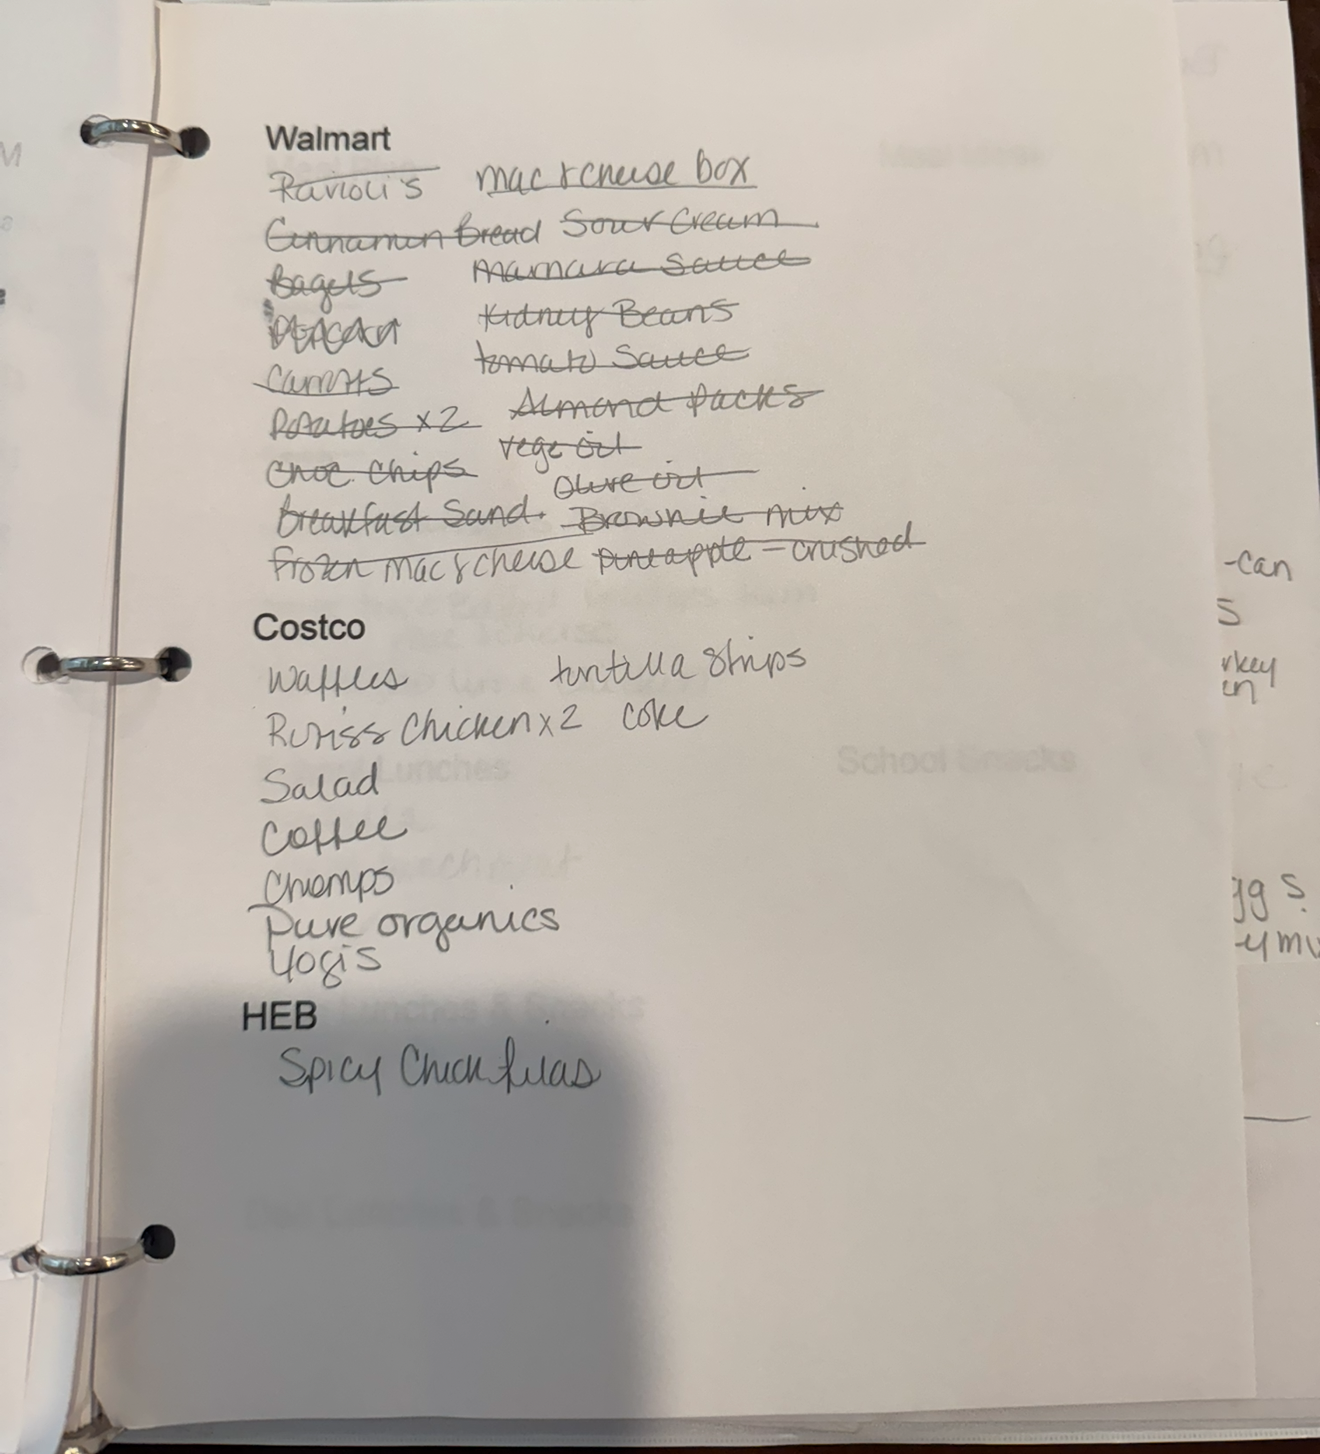 Walmart
Ravioli's mac & cheese box
Cinnamon Bread Sour Cream
Bagels Marnara Sauce
Kidney Beans
Carrots tomato Sauce
Potatoes x2 Almond Packs
Choc. Chips vege oil
Olive oil
Breakfast Sand. Brownie mix
frozen mac & cheese pineapple - crushed
Costco
Waffles tortilla Strips
Rotiss Chicken x2 Coke
Salad
Coffee
Chomps
Pure organics
Yogis
HEB
Spicy Chickfilas
-can
s
rkey
en
School Snacks
Lunches
gg s.
Lunches & Snacks